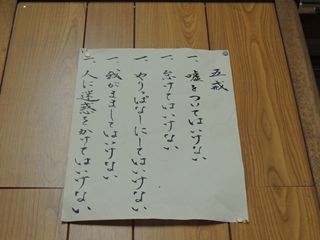 五戒
一、嘘をついてはいけない
一、怠けてはいけない
一、やりっぱなしにしてはいけない
一、我がまましてはいけない
一、人に迷惑をかけてはいけない